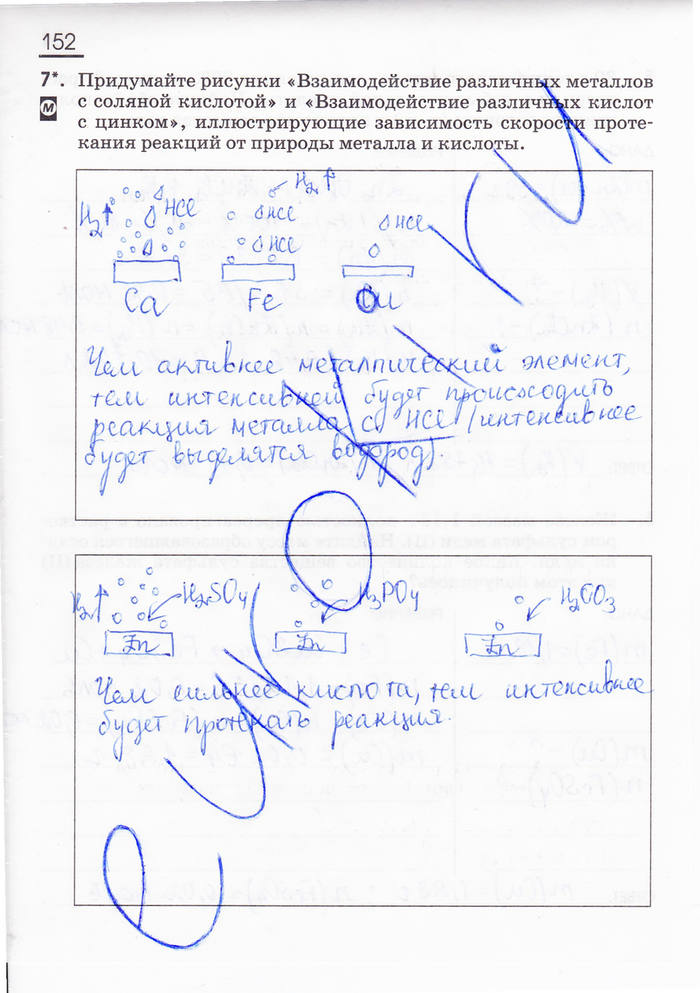 152
7*. Придумайте рисунки «Взаимодействие различных металлов
М с соляной кислотой» и «Взаимодействие различных кислот
с цинком», иллюстрирующие зависимость скорости проте-
кания реакций от природы металла и кислоты.
H₂↑ HCl HCl HCl H₂↑ HCl
Ca Fe Cu
Чем активнее металлический элемент,
тем интенсивней будет происходить
реакция металла с HCl (интенсивнее
будет выделятся водород).
H₂↑ H₂SO₄ H₃PO₄ H₂CO₃
Zn Zn Zn
Чем сильнее кислота, тем интенсивнее
будет протекать реакция.
euroki.ru